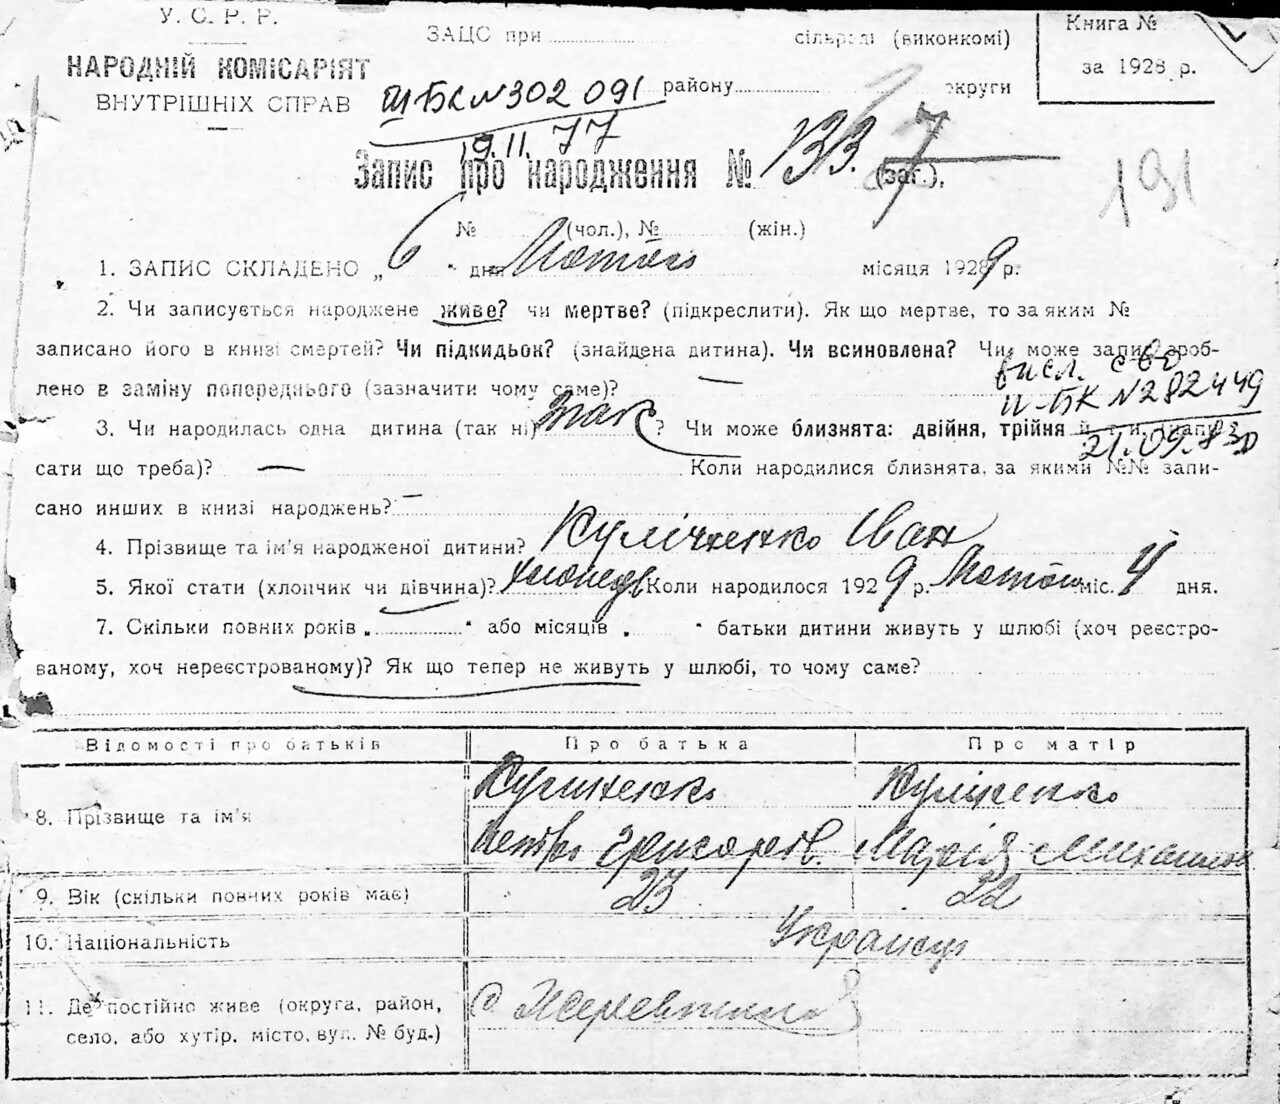 У. С. Р. Р.
НАРОДНІЙ КОМІСАРІЯТ
ВНУТРІШНІХ СПРАВ
ЗАЦС при сільраді (виконкомі)
району округи
Книга №
за 1928 р.
III БК № 302 091
19.11.77
Запис про народження № 133. 7 (заг.),
191
№ (чол.), № (жін.)
1. ЗАПИС СКЛАДЕНО „ 6 " дня Лютого місяця 1929 р.
2. Чи записується народжене живе? чи мертве? (підкреслити). Як що мертве, то за яким №
записано його в книзі смертей? Чи підкидьок? (знайдена дитина). Чи всиновлена? Чи може запис зроб-
лено в заміну попереднього (зазначити чому саме)?
висл. св
II-БК № 282449
21.09.83
3. Чи народилась одна дитина (так ні) так ? Чи може близнята: двійня, трійня й т. и.
сати що треба)? — Коли народилися близнята, за якими №№ запи-
сано инших в книзі народжень? —
4. Прізвище та ім'я народженої дитини? Кулічненко Іван
5. Якої стати (хлопчик чи дівчина)? хлопець Коли народилося 1929 р. Лютого міс. 4 дня.
7. Скільки повних років „ " або місяців „ " батьки дитини живуть у шлюбі (хоч реєстро-
ваному, хоч нереєстрованому)? Як що тепер не живуть у шлюбі, то чому саме?
Відомості про батьків Про батька Про матір
8. Прізвище та ім'я
Петро Григоров. Марія
9. Вік (скільки повних років має) 23 22
10. Національність Українці
11. Де постійно живе (округа, район,
село, або хутір, місто, вул. № буд.)
с.